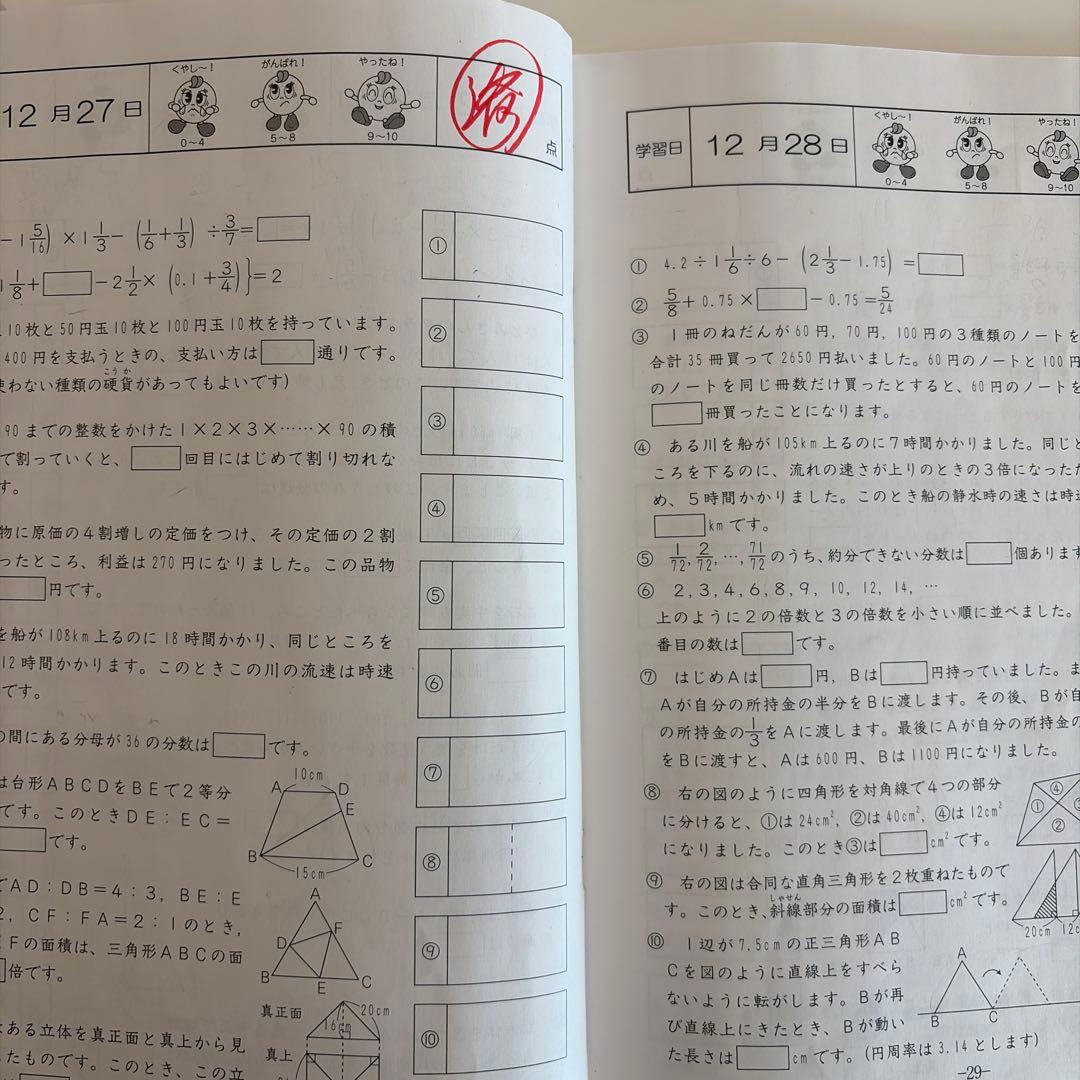 12月27日
くやし〜!
0〜4
がんばれ!
5〜8
やったね!
9〜10
点
-1 5/16) ×1 1/3-(1/6+1/3)÷3/7=□
1 1/8+□-2 1/2×(0.1+3/4)}=2
10枚と50円玉10枚と100円玉10枚を持っています。
400円を支払うときの、支払い方は□通りです。
使わない種類の硬貨があってもよいです)
こうか
90までの整数をかけた1×2×3×……×90の積
て割っていくと、□回目にはじめて割り切れな
す。
物に原価の4割増しの定価をつけ、その定価の2割
ったところ、利益は270円になりました。この品物
□円です。
を船が108km上るのに18時間かかり、同じところを
12時間かかります。このときこの川の流速は時速
です。
の間にある分母が36の分数は□です。
は台形ABCDをBEで2等分
です。このときDE:EC=
□です。
10cm
A
D
E
B
C
15cm
でAD:DB=4:3, BE:E
2, CF:FA=2:1のとき,
Fの面積は、三角形ABCの面
倍です。
A
F
D
B
E
C
はある立体を真正面と真上から見
たものです。このとき、この立
真正面
20cm
16cm
真上
①
②
③
④
⑤
⑥
⑦
⑧
⑨
⑩
学習日
12月28日
くやし〜!
0〜4
がんばれ!
5〜8
やったね!
9〜10
① 4.2÷1 1/6÷6-(2 1/3-1.75)=□
② 5/8+0.75×□-0.75=5/24
③ 1冊のねだんが60円, 70円, 100円の3種類のノートを
合計35冊買って2650円払いました。60円のノートと100円
のノートを同じ冊数だけ買ったとすると、60円のノートを
□冊買ったことになります。
④ ある川を船が105km上るのに7時間かかりました。同じと
ころを下るのに、流れの速さが上りのときの3倍になったた
め、5時間かかりました。このとき船の静水時の速さは時速
□kmです。
⑤ 1/72, 2/72, …, 71/72のうち、約分できない分数は□個あります
⑥ 2, 3, 4, 6, 8, 9, 10, 12, 14, …
上のように2の倍数と3の倍数を小さい順に並べました。
番目の数は□です。
⑦ はじめAは□円, Bは□円持っていました。ま
Aが自分の所持金の半分をBに渡します。その後、Bが自
の所持金の1/3をAに渡します。最後にAが自分の所持金の
をBに渡すと、Aは600円、Bは1100円になりました。
⑧ 右の図のように四角形を対角線で4つの部分
に分けると、①は24cm², ②は40cm², ④は12cm²
になりました。このとき③は□cm²です。
④
①
②
⑨ 右の図は合同な直角三角形を2枚重ねたもので
す。このとき、斜線部分の面積は□cm²です。
しゃせん
20cm
12c
⑩ 1辺が7.5cmの正三角形AB
Cを図のように直線上をすべら
ないように転がします。Bが再
び直線上にきたとき、Bが動い
た長さは□cmです。(円周率は3.14とします)
A
B
C
-29-